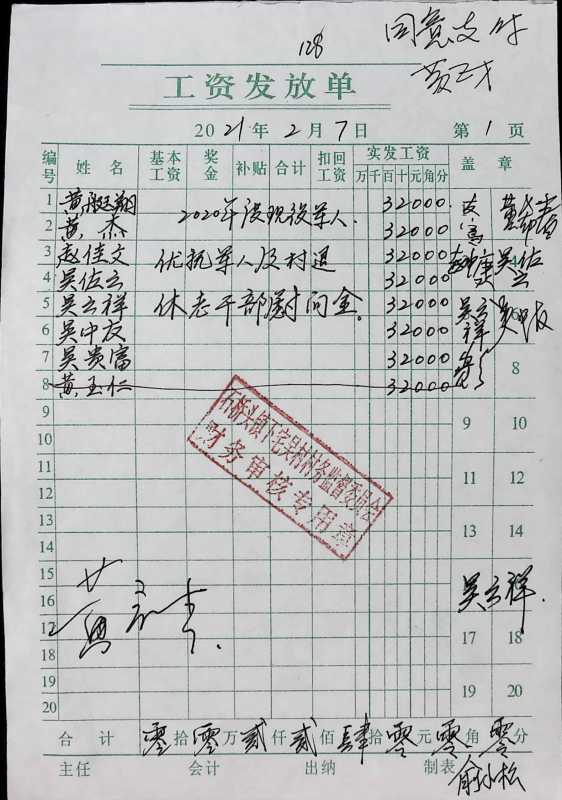 128
同意支付
工资发放单
2021年2月7日 第1页
编号 姓名 基本工资 奖金 补贴 合计 扣回工资 实发工资 万千百十元角分 盖章
1 黄殿翔 2020年度现役军人. 32000
2 黄杰 32000
3 赵佳文 优抚军人及村退 32000
4 吴佐云 32000 吴佐云
5 吴云祥 休老干部慰问金. 32000 吴云祥
6 吴中友 32000
7 吴贵富 32000 8
8 黄玉仁 32000
9 9 10
10
11 11 12
12
13 13 14
14
15
16 吴云祥.
17 17 18
18
19 19 20
20
石桥头镇下宅吴村村务监督委员会
财务审核专用章
合计 零拾零万贰仟贰佰肆拾零元零角零分
主任 会计 出纳 制表 俞小松